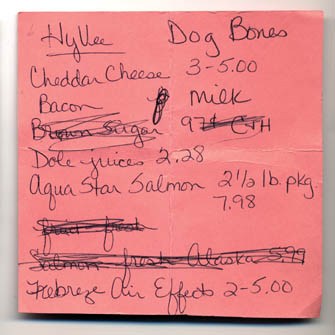 HyVee Dog Bones
Cheddar Cheese 3-5.00
Bacon Milk
Brown Sugar 97¢
Dole juices 2.28
Aqua Star Salmon 2½ lb. pkg.
7.98
fruit fresh
Salmon fresh Alaska 5.99
Febreze Air Effects 2-5.00